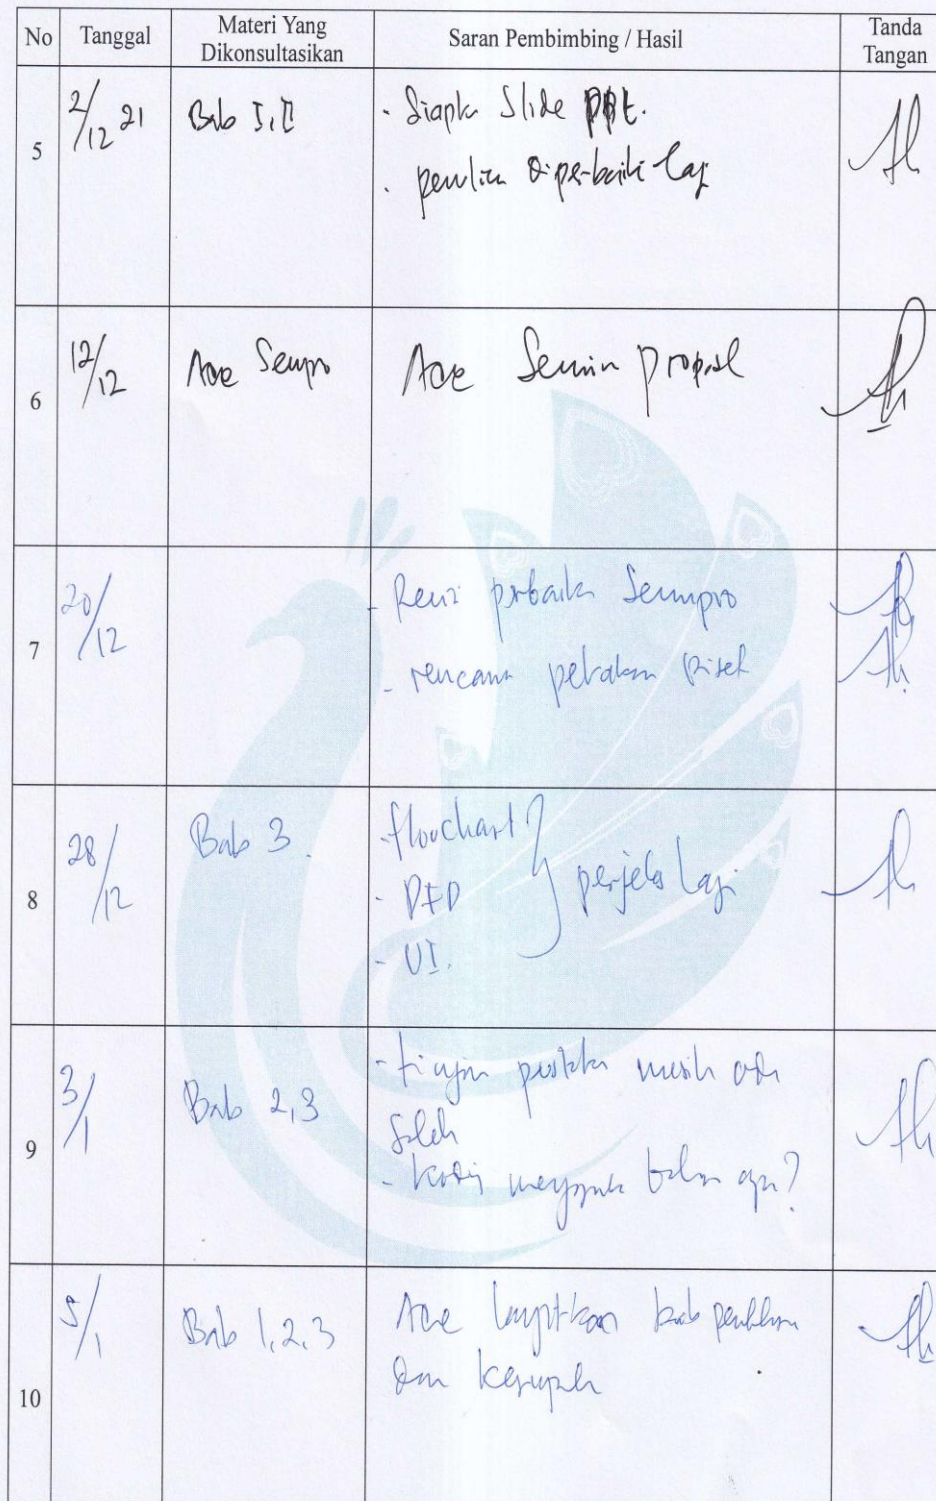 No Tanggal Materi Yang Dikonsultasikan Saran Pembimbing / Hasil Tanda Tangan
5 2/12 21 Bab I, II - Siapka Slide ppt.
- penulisa diperbaiki lagi
6 12/12 Acc Sempro Acc Semin Proposal
7 20/12 - Revisi perbaika Sempro
- rencana
8 28/12 Bab 3. - flowchart
- DFD perjelas lagi
- UI.
9 3/1 Bab 2,3 - pustaka masih ada
Salah
- koding apa?
10 5/1 Bab 1, 2, 3 Acc lanjutkan bab
dan